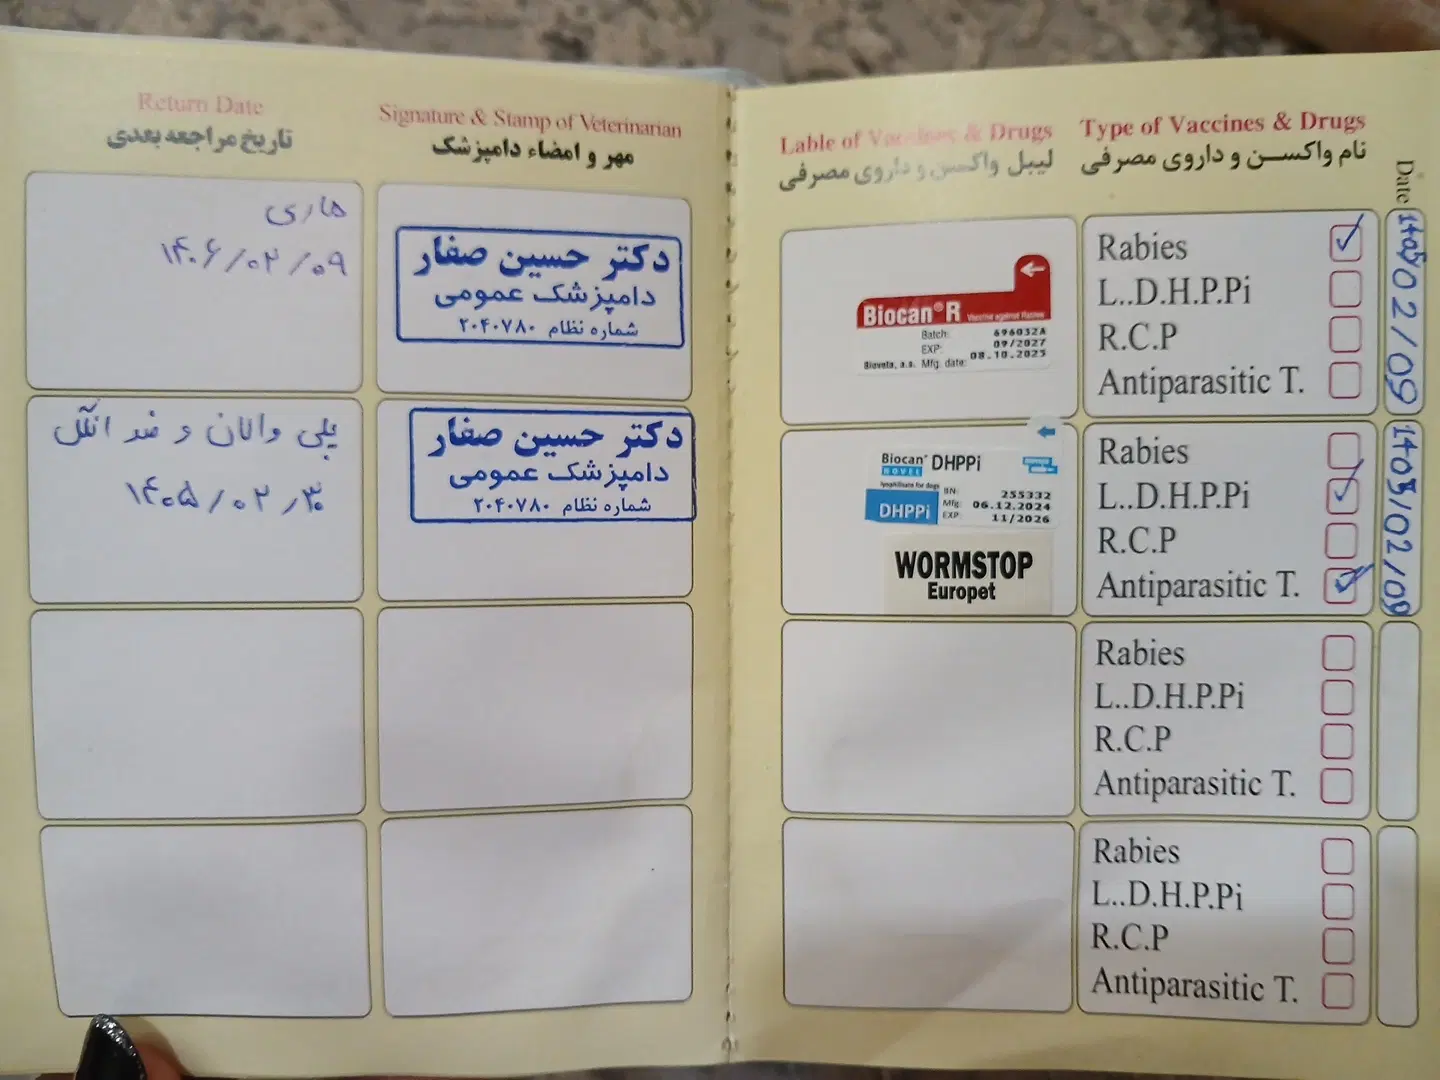 Return Date
تاریخ مراجعه بعدی
Signature & Stamp of Veterinarian
مهر و امضاء دامپزشک
Lable of Vaccines & Drugs
لیبل واکسن و داروی مصرفی
Type of Vaccines & Drugs
نام واکسن و داروی مصرفی
Date
هاری
۱۴۰۶/۰۲/۰۹
دکتر حسین صفار
دامپزشک عمومی
شماره نظام ۲۰۴۰۷۸۰
Biocan® R
Vaccine against Rabies
Batch: 696032A
EXP: 09/2027
Bioveta, a.s. Mfg. date: 08.10.2025
Rabies
L..D.H.P.Pi
R.C.P
Antiparasitic T.
1405/02/09
پلی والان و ضد انگل
۱۴۰۵/۰۲/۳۰
دکتر حسین صفار
دامپزشک عمومی
شماره نظام ۲۰۴۰۷۸۰
Biocan® DHPPi
NOVEL
lyophilisate for dogs
DHPPi
BN: 255332
Mfg: 06.12.2024
EXP: 11/2026
WORMSTOP
Europet
Rabies
L..D.H.P.Pi
R.C.P
Antiparasitic T.
1405/02/09
Rabies
L..D.H.P.Pi
R.C.P
Antiparasitic T.
Rabies
L..D.H.P.Pi
R.C.P
Antiparasitic T.